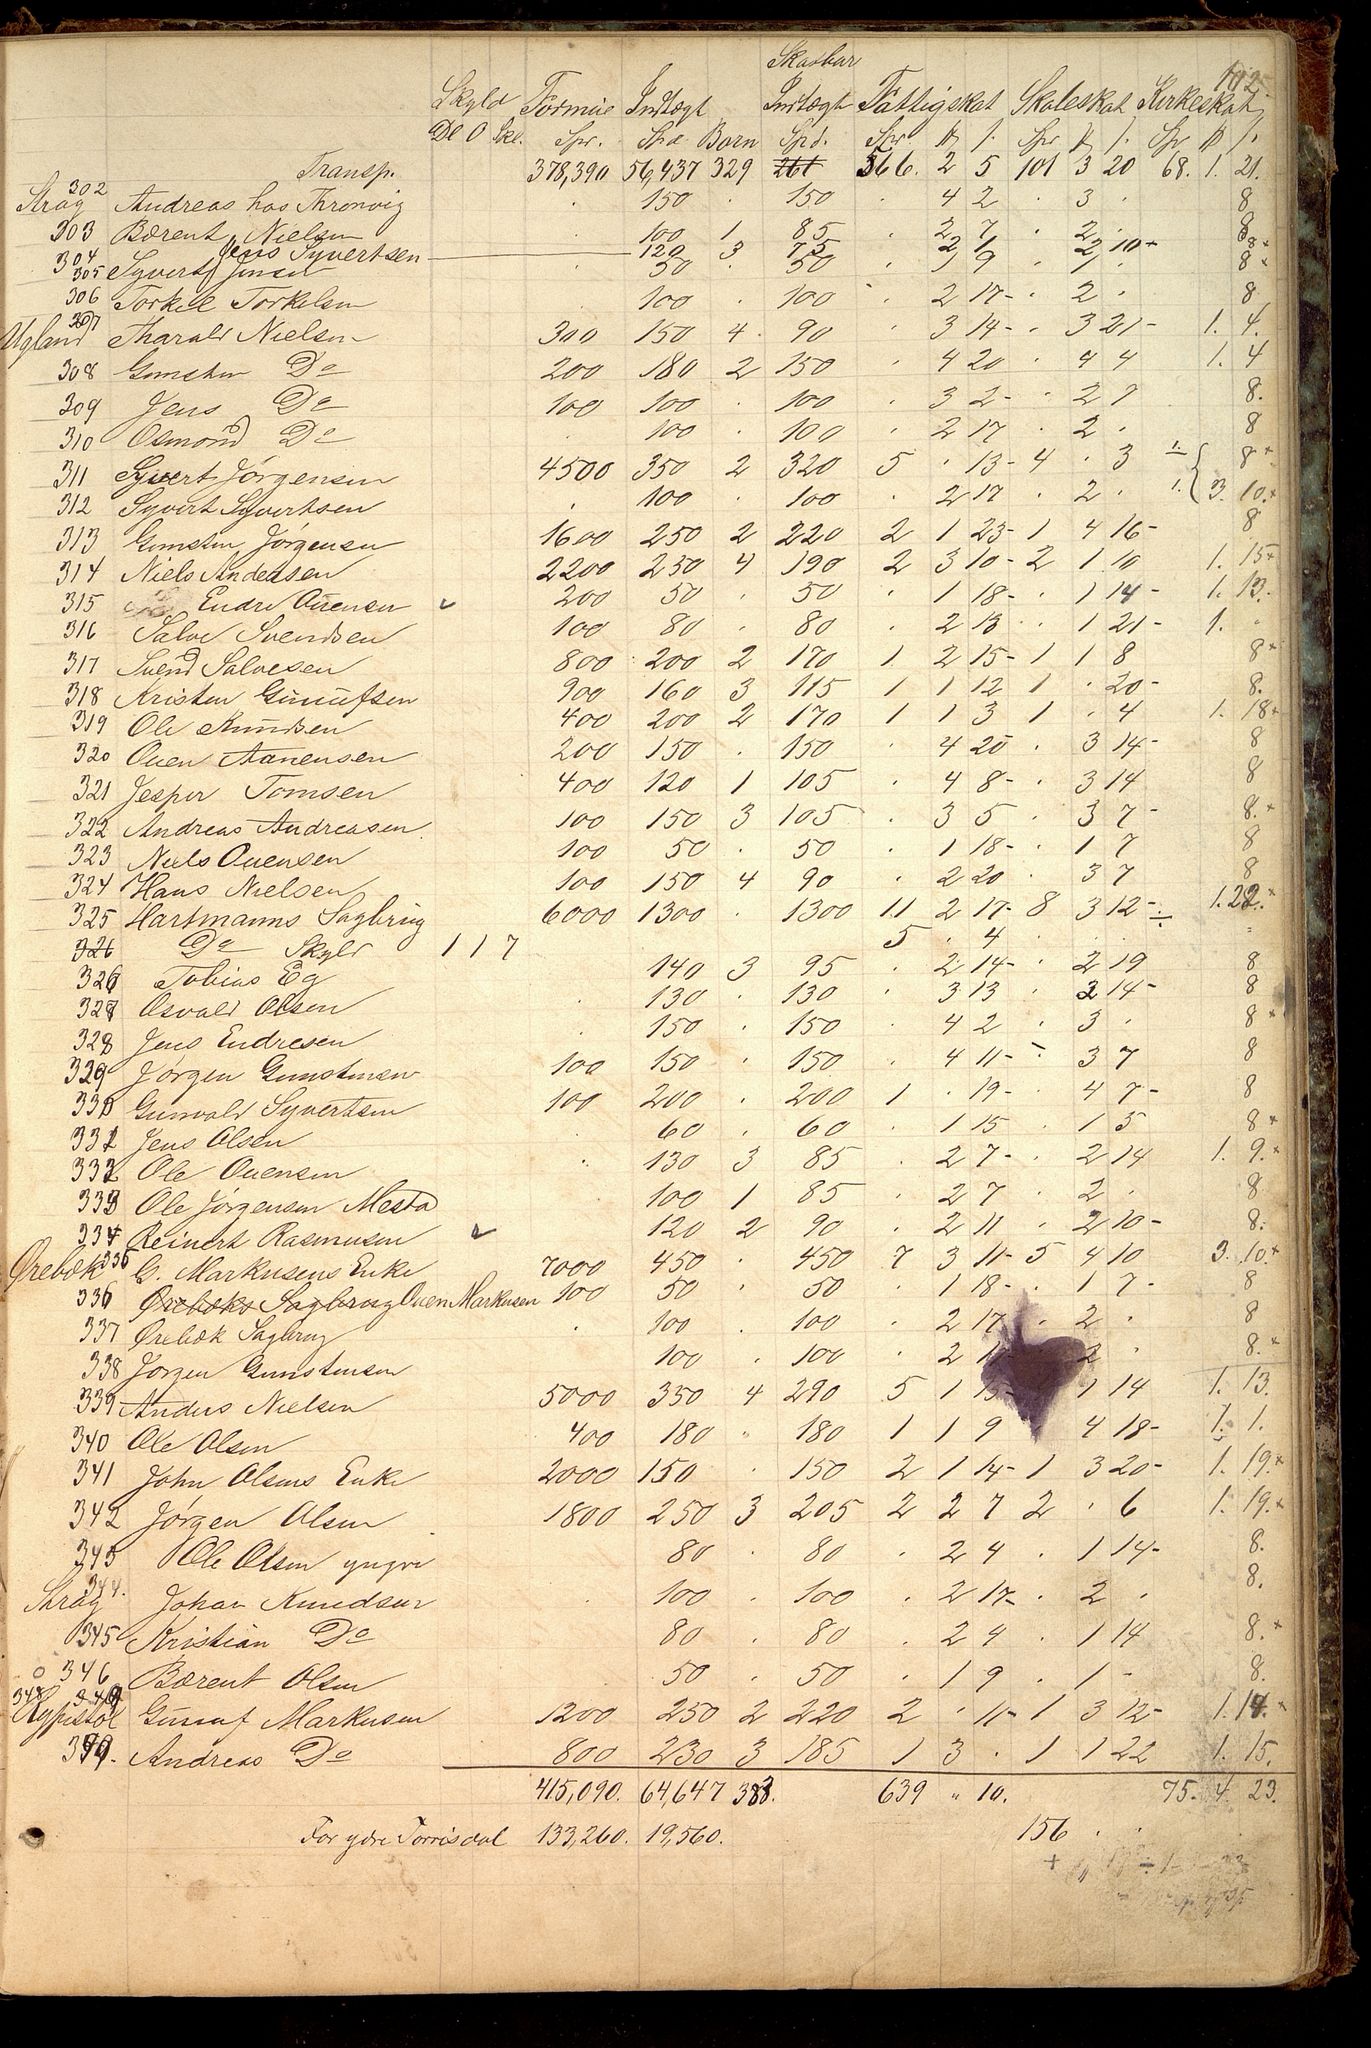 102
Skatbar
Skyld Formue Indtægt Indtægt Fattigskat Skoleskat Kirkeskat
Dl O Skl. Spr. Spd Born Spd. Spr # s. Spr # s. Spr # s.
Transp. 378,390 56,437 329 261 566. 2 5 101 3 20 68. 1. 21.
Strag 302 Andreas hos Thronvig . 150 . 150 . 4 2 . 3 . 8
303 Bærent Nielsen 100 1 85 . 2 7 . 2 . 8
304 Jens Syvertsen 120 3 75 2 1 2 10 8
305 Syvert Jensen 50 . 50 . 1 9 . 1 . 8
306 Torkel Torkelsen 100 . 100 . 2 17 - . 2 . 8
Ugland 307 Tharald Nielsen 300 150 4 . 90 . 3 14 - . 3 21 - 1. 4.
308 Gunsten Do 200 180 2 150 . 4 20 . 4 4 1. 4
309 Jens Do 100 100 . 100 . 3 2 - . 2 7 8.
310 Osmond Do . 100 . 100 . 2 17 . 2 . 8
311 Syvert Jørgensen 4500 350 2 320 5 . 13 - 4 . 3 1. 8
312 Syvert Syvertsen . 100 . 100 . 2 17 . 2 . 1. 3. 10.
313 Gunsten Jørgensen 1600 250 2 220 2 1 23 - 1 4 16 - 8
314 Niels Andersen 2200 250 4 190 2 3 10 - 2 1 10 1. 15
315 Endre Ouensen 200 50 . 50 . 1 18 - . 1 14 - 1. 13.
316 Salve Svendsen 100 80 . 80 . 2 13 . 1 21 - 1. .
317 Svend Salvesen 800 200 2 170 1 2 15 - 1 1 8 8
318 Kristen Gunnufsen 900 160 3 115 1 1 12 1 . 20 - 8.
319 Ole Knudsen 400 200 2 170 1 1 3 1 . 4 1. 18
320 Ouen Aanensen 200 150 . 150 . 4 20 . 3 14 - 8
321 Jesper Tomsen 400 120 1 105 . 4 8 - . 3 14 8
322 Andreas Andreasen 100 150 3 105 . 3 5 . 3 7 - 8.
323 Niels Ouensen 100 50 . 50 . 1 18 - . 1 7 8
324 Hans Nielsen 100 150 4 90 . 2 20 . 3 7 8
325 Hartmanns Sagbrug 6000 1300 . 1300 11 2 17 - 8 3 12 - 1. 22.
326 Do Skyld 1 1 7 5 . 4 . . .
326 Tobias Eg 140 3 95 . 2 14 - . 2 19 8
327 Osvald Olsen . 130 . 130 . 3 13 . 2 14 - 8
328 Jens Endresen . 150 . 150 . 4 2 . 3 . 8
329 Jørgen Gunstensen 100 150 . 150 . 4 11 - . 3 7 8
330 Gunvald Syvertsen 100 200 . 200 1 . 19 - . 4 7 - 8
331 Jens Olsen 60 . 60 . 1 15 . 1 5 8
332 Ole Ouensen . 130 3 85 . 2 7 - . 2 14 1. 9.
333 Ole Jørgensen Mesta 100 1 85 . 2 7 . 2 . 8
334 Reinert Rasmusen 120 2 90 . 2 11 . 2 10 - 8.
Ørebæk 335 G. Markusens Enke 7000 450 . 450 7 3 11 - 5 4 10 3. 10.
336 Ørebæks Sagbrug Ouen Markusen 100 50 . 50 . 1 18 - . 1 7 - 8
337 Ørebæk Sagbrug . 100 . 100 . 2 17 . 2 . 8
338 Jørgen Gunstensen 100 . 100 . 2 2 . 8.
339 Anders Nielsen 5000 350 4 290 5 1 15 - 1 14 1. 13.
340 Ole Olsen 400 180 . 180 1 1 9 . 4 18 - 1. 1.
341 John Olsens Enke 2000 150 . 150 2 1 14 - 1 3 20 - 1. 19.
342 Jørgen Olsen 1800 250 3 205 2 2 7 2 . 6 1. 19.
343 Ole Olsen yngre . 80 . 80 . 2 4 . 1 14 - 8.
Strag 344. Johan Knudsen . 100 . 100 . 2 17 - . 2 . 8.
345 Kristian Do 80 . 80 . 2 4 . 1 14 8.
346 Bærent Olsen . 50 . 50 . 1 9 . 1 - 8.
348 Rypestøl Gunuf Markusen 1200 250 2 220 2 . 11 - 1 3 12 - 1. 14.
Andreas Do 800 230 3 185 1 3 . 1 1 22 1. 15.
415,090. 64,647 383. 639 " 10. 75. 4. 23.
For ydre Torrisdal 133,260. 19,560. 156 . .